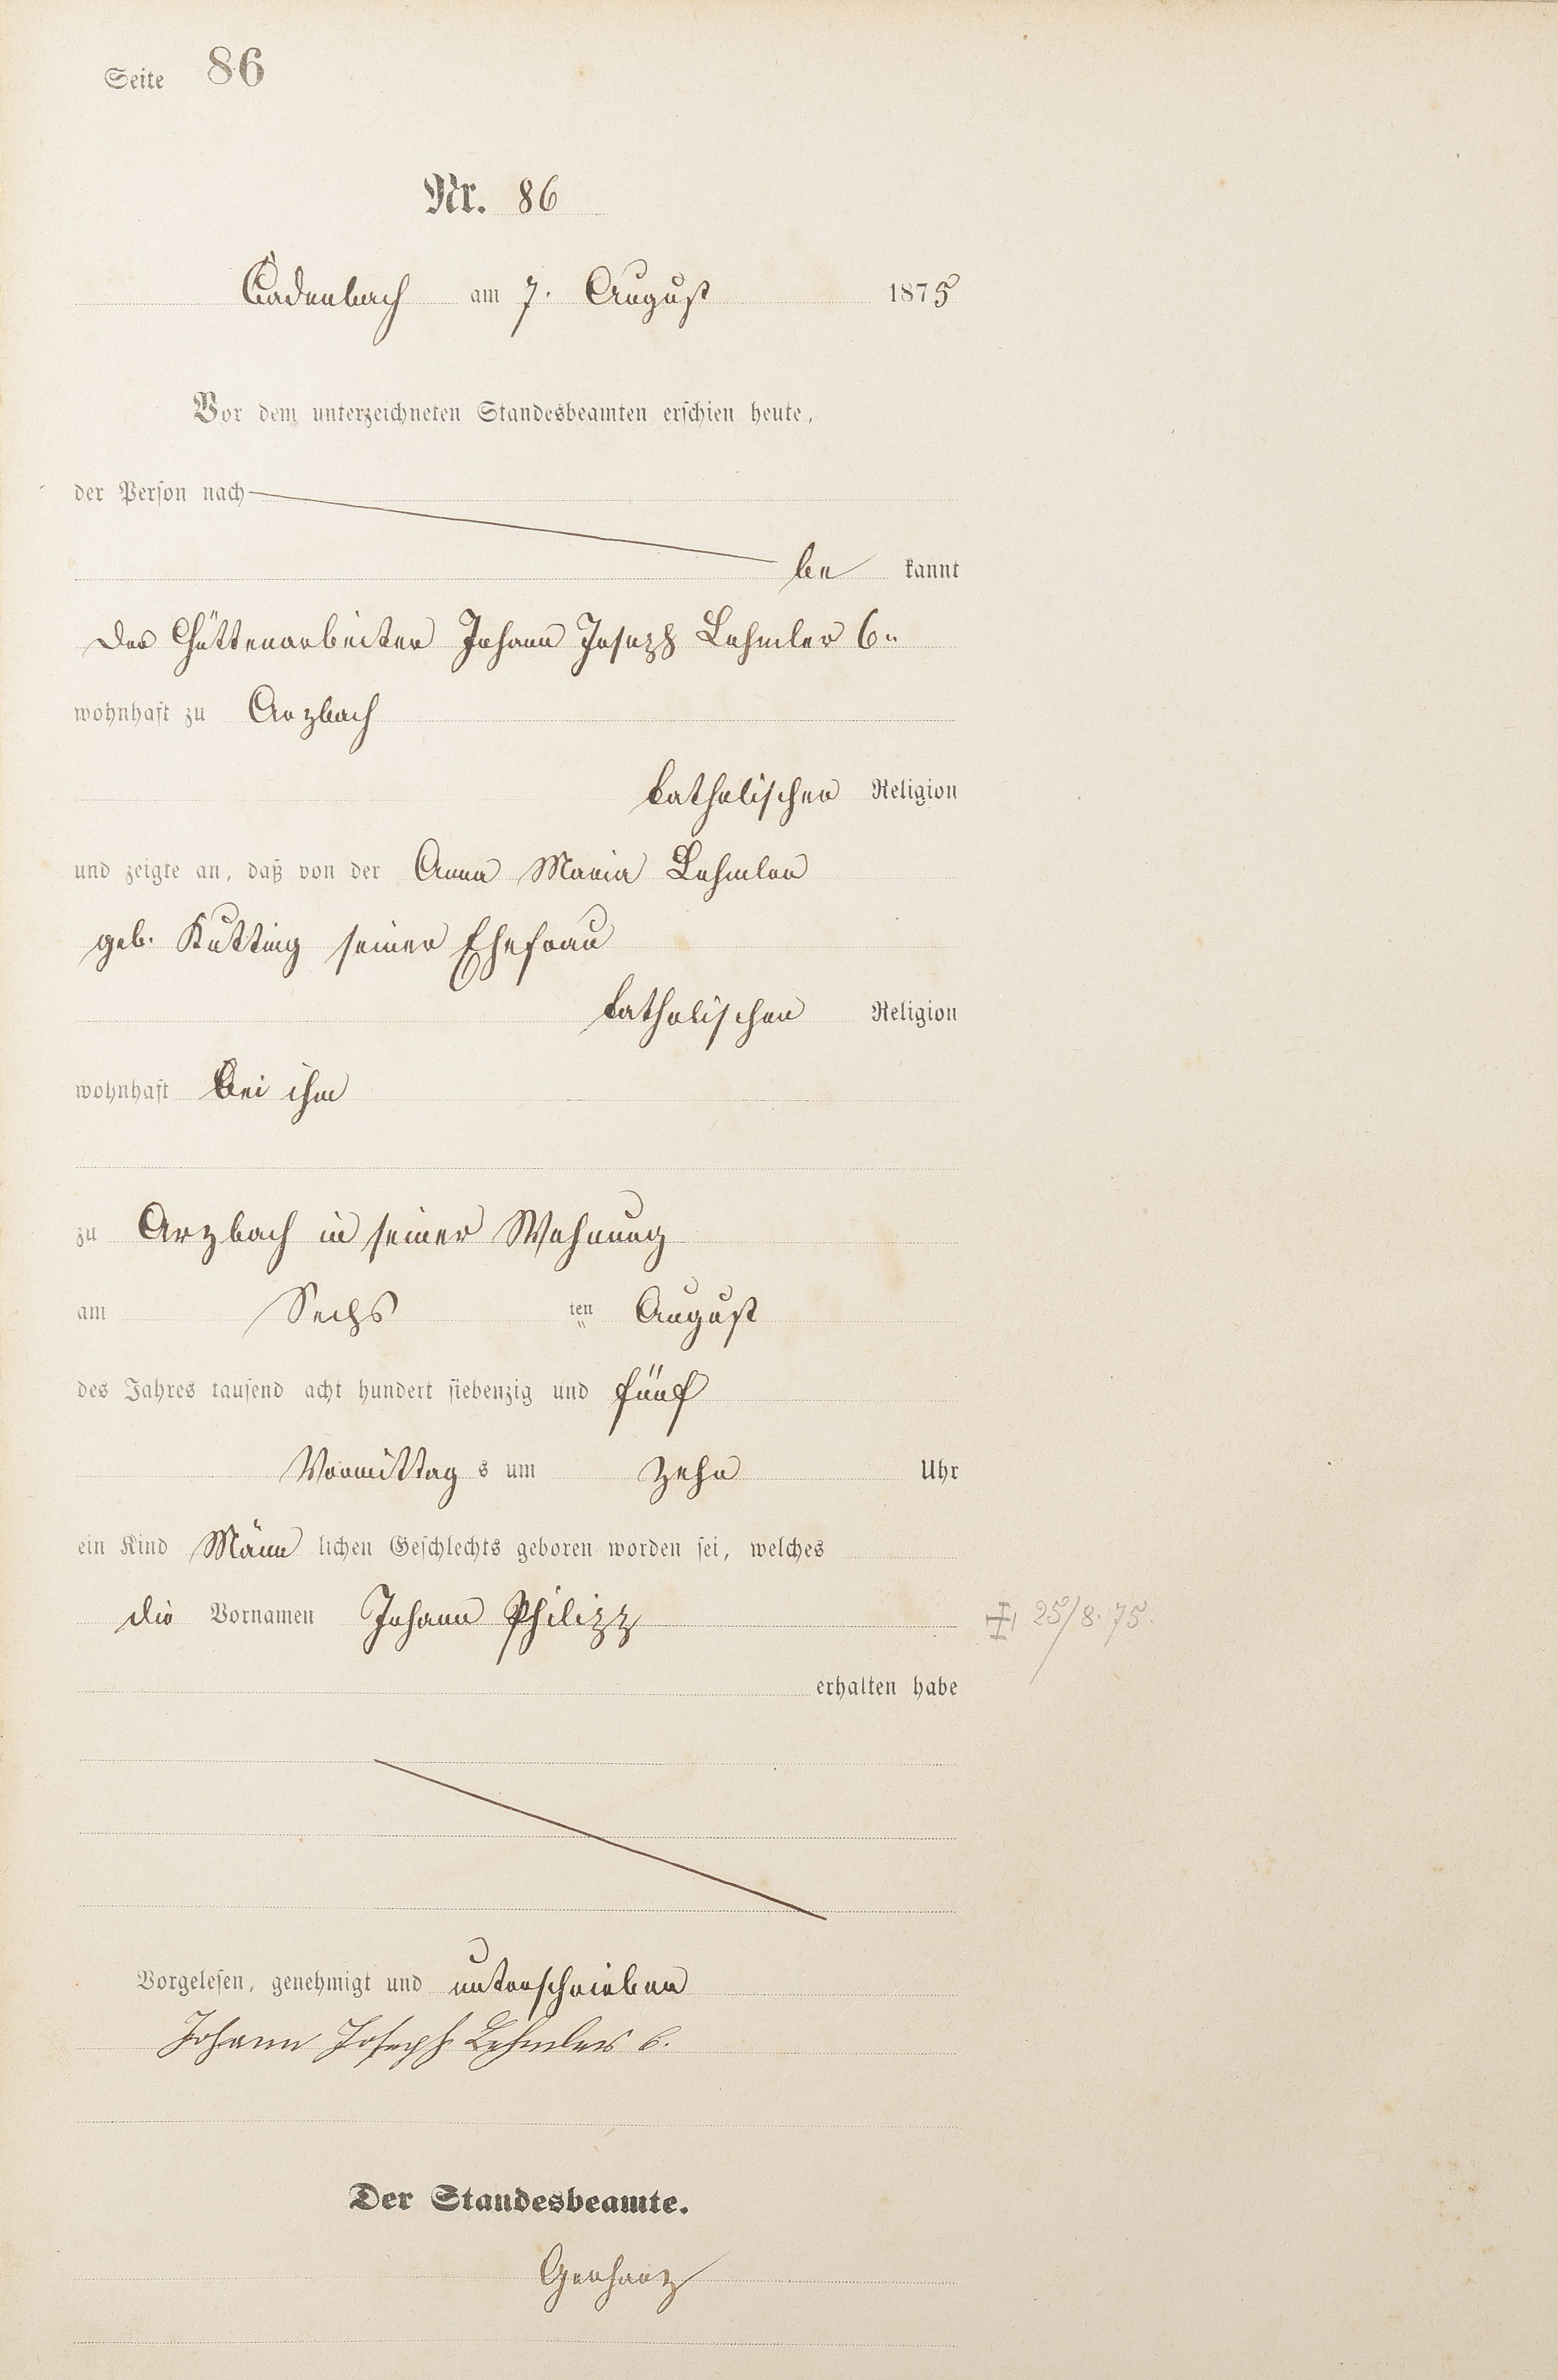 Seite 86
Nr. 86
Cadenbach am 7. August 1875
Vor dem unterzeichneten Standesbeamten erschien heute,
der Person nach
be kannt
der Hüttenarbeiter Johann Joseph Lehmler 6.
wohnhaft zu Arzbach
katholischer Religion
und zeigte an, daß von der Anna Maria Lehmler
geb. Kutting seiner Ehefrau
katholischer Religion
wohnhaft bei ihm
zu Arzbach in seiner Wohnung
am Sechs ten August
des Jahres tausend acht hundert siebenzig und fünf
Vormittag s um zehn Uhr
ein Kind Männ lichen Geschlechts geboren worden sei, welches
die Vornamen Johann Philipp
25/8.75.
erhalten habe
Vorgelesen, genehmigt und unterschrieben
Johann Joseph Lehmler 6.
Der Standesbeamte.
Gerharz